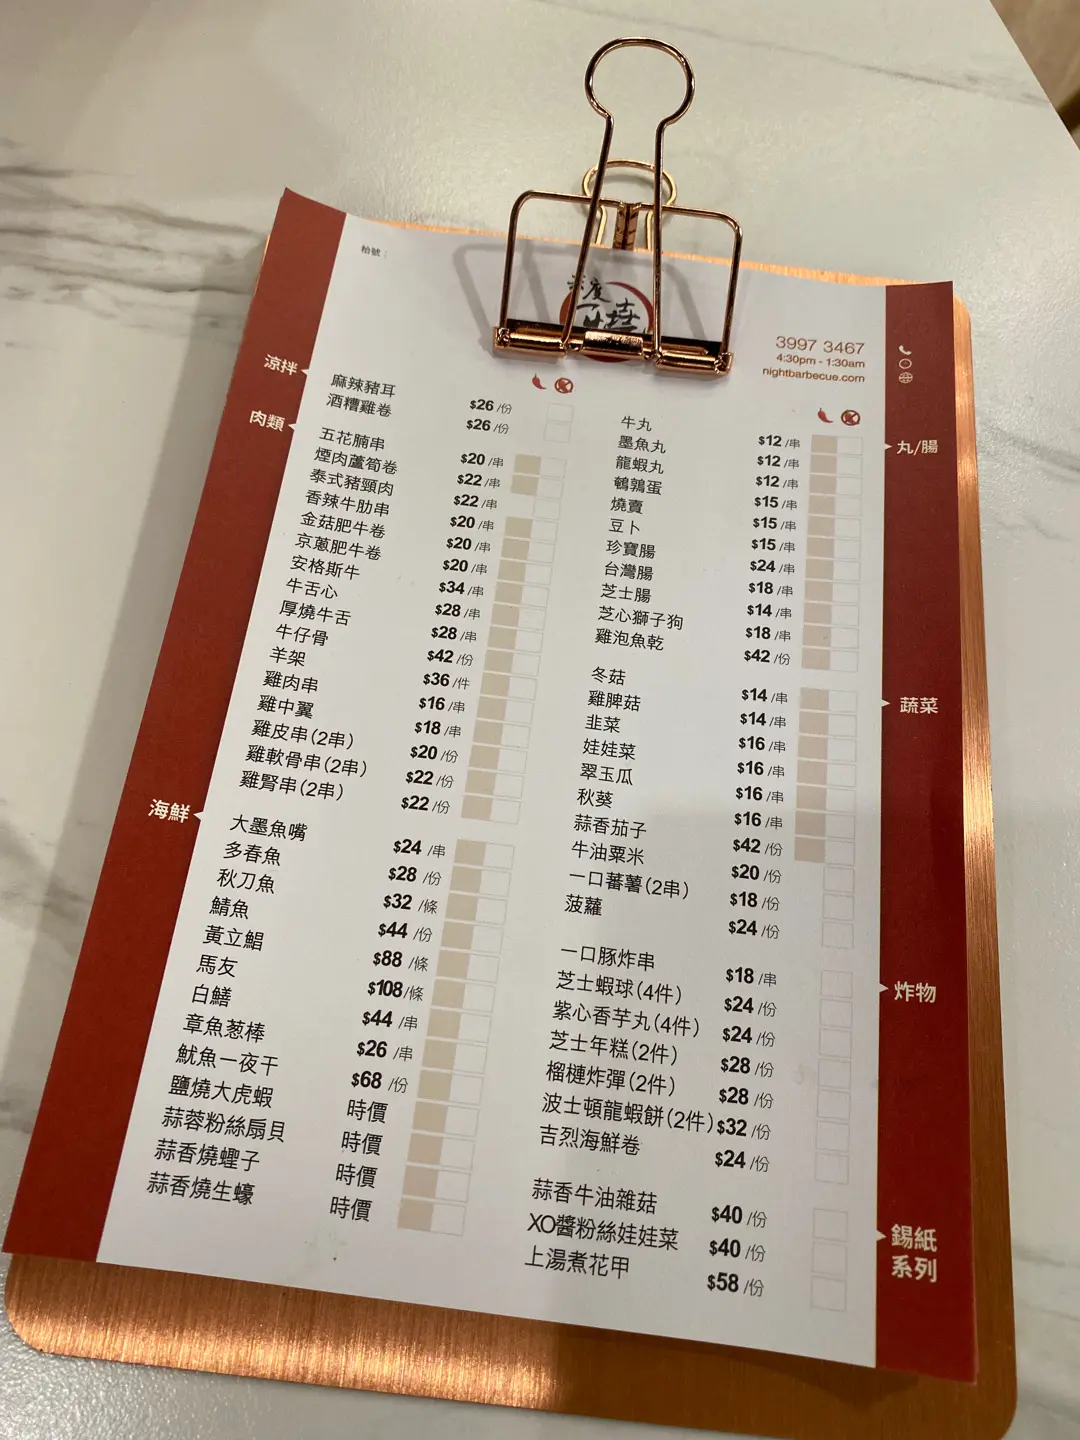 枱號：
燒
3997 3467
4:30pm - 1:30am
nightbarbecue.com
涼拌
麻辣豬耳 $26 /份
酒糟雞卷 $26 /份
肉類
五花腩串 $20 /串
煙肉蘆筍卷 $22 /串
泰式豬頸肉 $22 /串
香辣牛肋串 $20 /串
金菇肥牛卷 $20 /串
京蔥肥牛卷 $20 /串
安格斯牛 $34 /串
牛舌心 $28 /串
厚燒牛舌 $28 /串
牛仔骨 $42 /份
羊架 $36 /件
雞肉串 $16 /串
雞中翼 $18 /串
雞皮串(2串) $20 /份
雞軟骨串(2串) $22 /份
雞腎串(2串) $22 /份
海鮮
大墨魚嘴 $24 /串
多春魚 $28 /份
秋刀魚 $32 /條
鯖魚 $44 /份
黃立鯧 $88 /條
馬友 $108/條
白鱔 $44 /串
章魚葱棒 $26 /串
魷魚一夜干 $68 /份
鹽燒大虎蝦 時價
蒜蓉粉絲扇貝 時價
蒜香燒蟶子 時價
蒜香燒生蠔 時價
丸/腸
牛丸 $12 /串
墨魚丸 $12 /串
龍蝦丸 $12 /串
鵪鶉蛋 $15 /串
燒賣 $15 /串
豆卜 $15 /串
珍寶腸 $24 /串
台灣腸 $18 /串
芝士腸 $14 /串
芝心獅子狗 $18 /串
雞泡魚乾 $42 /份
蔬菜
冬菇 $14 /串
雞脾菇 $14 /串
韭菜 $16 /串
娃娃菜 $16 /串
翠玉瓜 $16 /串
秋葵 $16 /串
蒜香茄子 $42 /份
牛油粟米 $20 /份
一口蕃薯(2串) $18 /份
菠蘿 $24 /份
炸物
一口豚炸串 $18 /串
芝士蝦球(4件) $24 /份
紫心香芋丸(4件) $24 /份
芝士年糕(2件) $28 /份
榴槤炸彈(2件) $28 /份
波士頓龍蝦餅(2件) $32 /份
吉烈海鮮卷 $24 /份
錫紙
系列
蒜香牛油雜菇 $40 /份
XO醬粉絲娃娃菜 $40 /份
上湯煮花甲 $58 /份